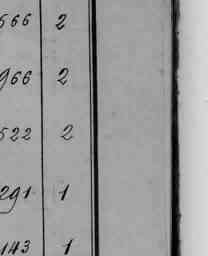 566 2
966 2
522 2
291 1
143 1